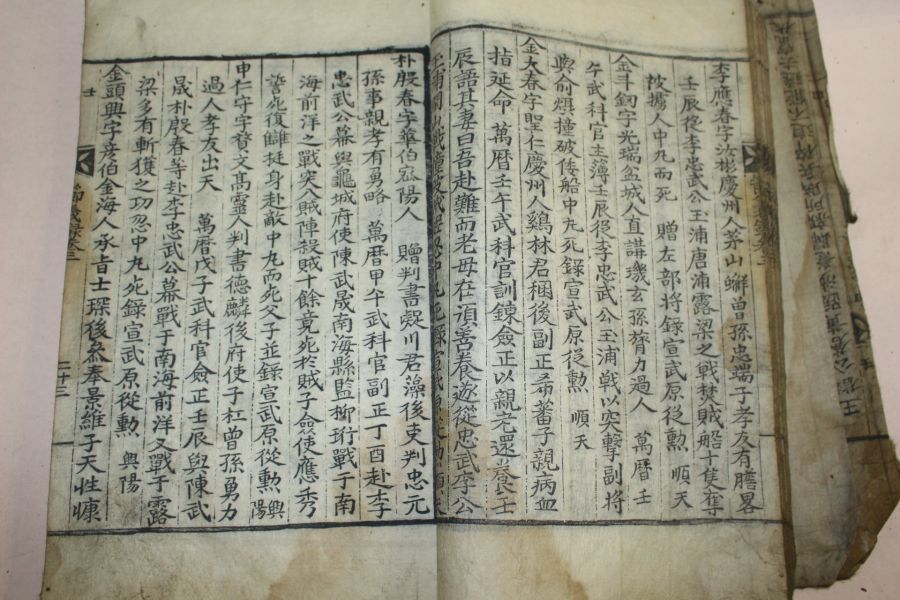 李應春字汝彬慶州人茅山 曾孫忠端子孝友有膽畧
壬辰從李忠武公玉浦唐浦露梁之戰焚賊船十隻奪
被擄人中丸而死 贈左部將錄宣武原從勲 順天
金斗 字光瑞盆城人直講璣玄孫膂力過人 萬曆壬
午武科官主薄壬辰從李忠武公玉浦戰以突擊副將
與俞 撞破倭船中丸死錄宣武原從勲 順天
金大春字聖仁慶州人鷄林君梱後副正希蕃子親病血
指延命 萬曆壬午武科官訓鍊僉正以親老還養壬
辰語其妻曰吾赴難而老母在須善養遂從忠武李公
玉浦閑山
朴殷春字華伯 陽人 贈判書凝川君藻後吏判忠元
孫事親孝有勇略 萬曆甲午武科官副正丁酉赴李
忠武公幕與龜城府使陳武晟南海縣監柳珩戰于南
海前洋之戰突入賊陣殺賊十餘竟死於賊子僉使應秀
誓死復讎挺身赴敵中丸而死父子並錄宣武原從勲 興陽
申仁守字賛文高靈人判書德麟後府使子杠曾孫勇力
過人孝友出天 萬曆戊子武科官僉正壬辰與陳武
晟朴殷春等赴李忠武公幕戰于南海前洋又戰于露
梁多有斬獲之功忍中丸死錄宣武原從勲 興陽
金頭興字彦伯金海人承旨士琛後叅奉景維子天性慷
二十三